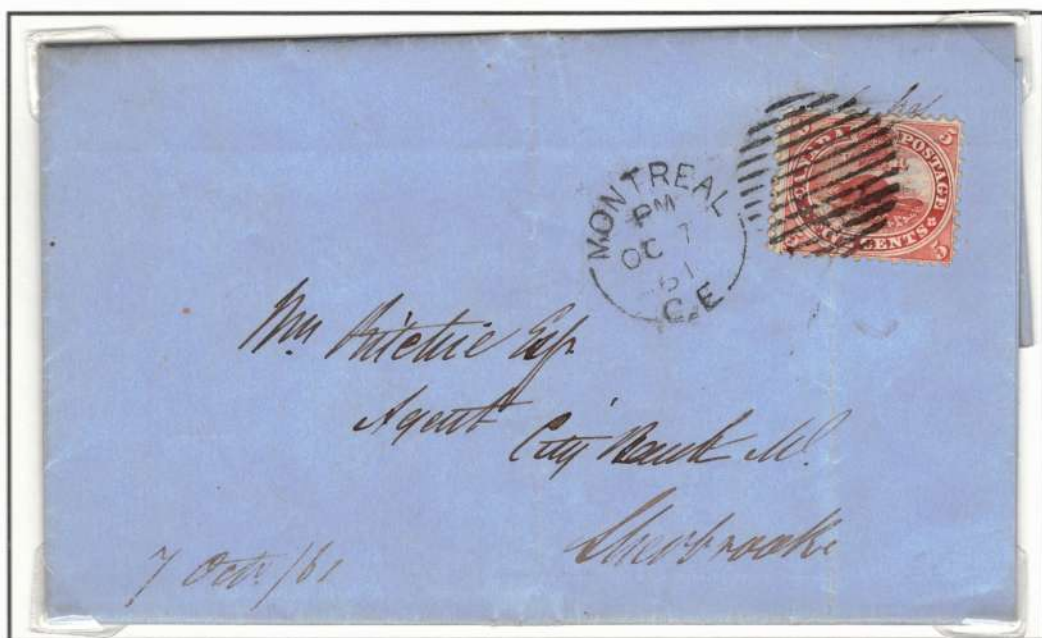 5 5
CANADA POSTAGE
CENTS
5
MONTREAL
PM
OC 7
61
C.E
Wm Ritchie Esq.
Agent City Bank M.
Sherbrooke
7 Octr /61